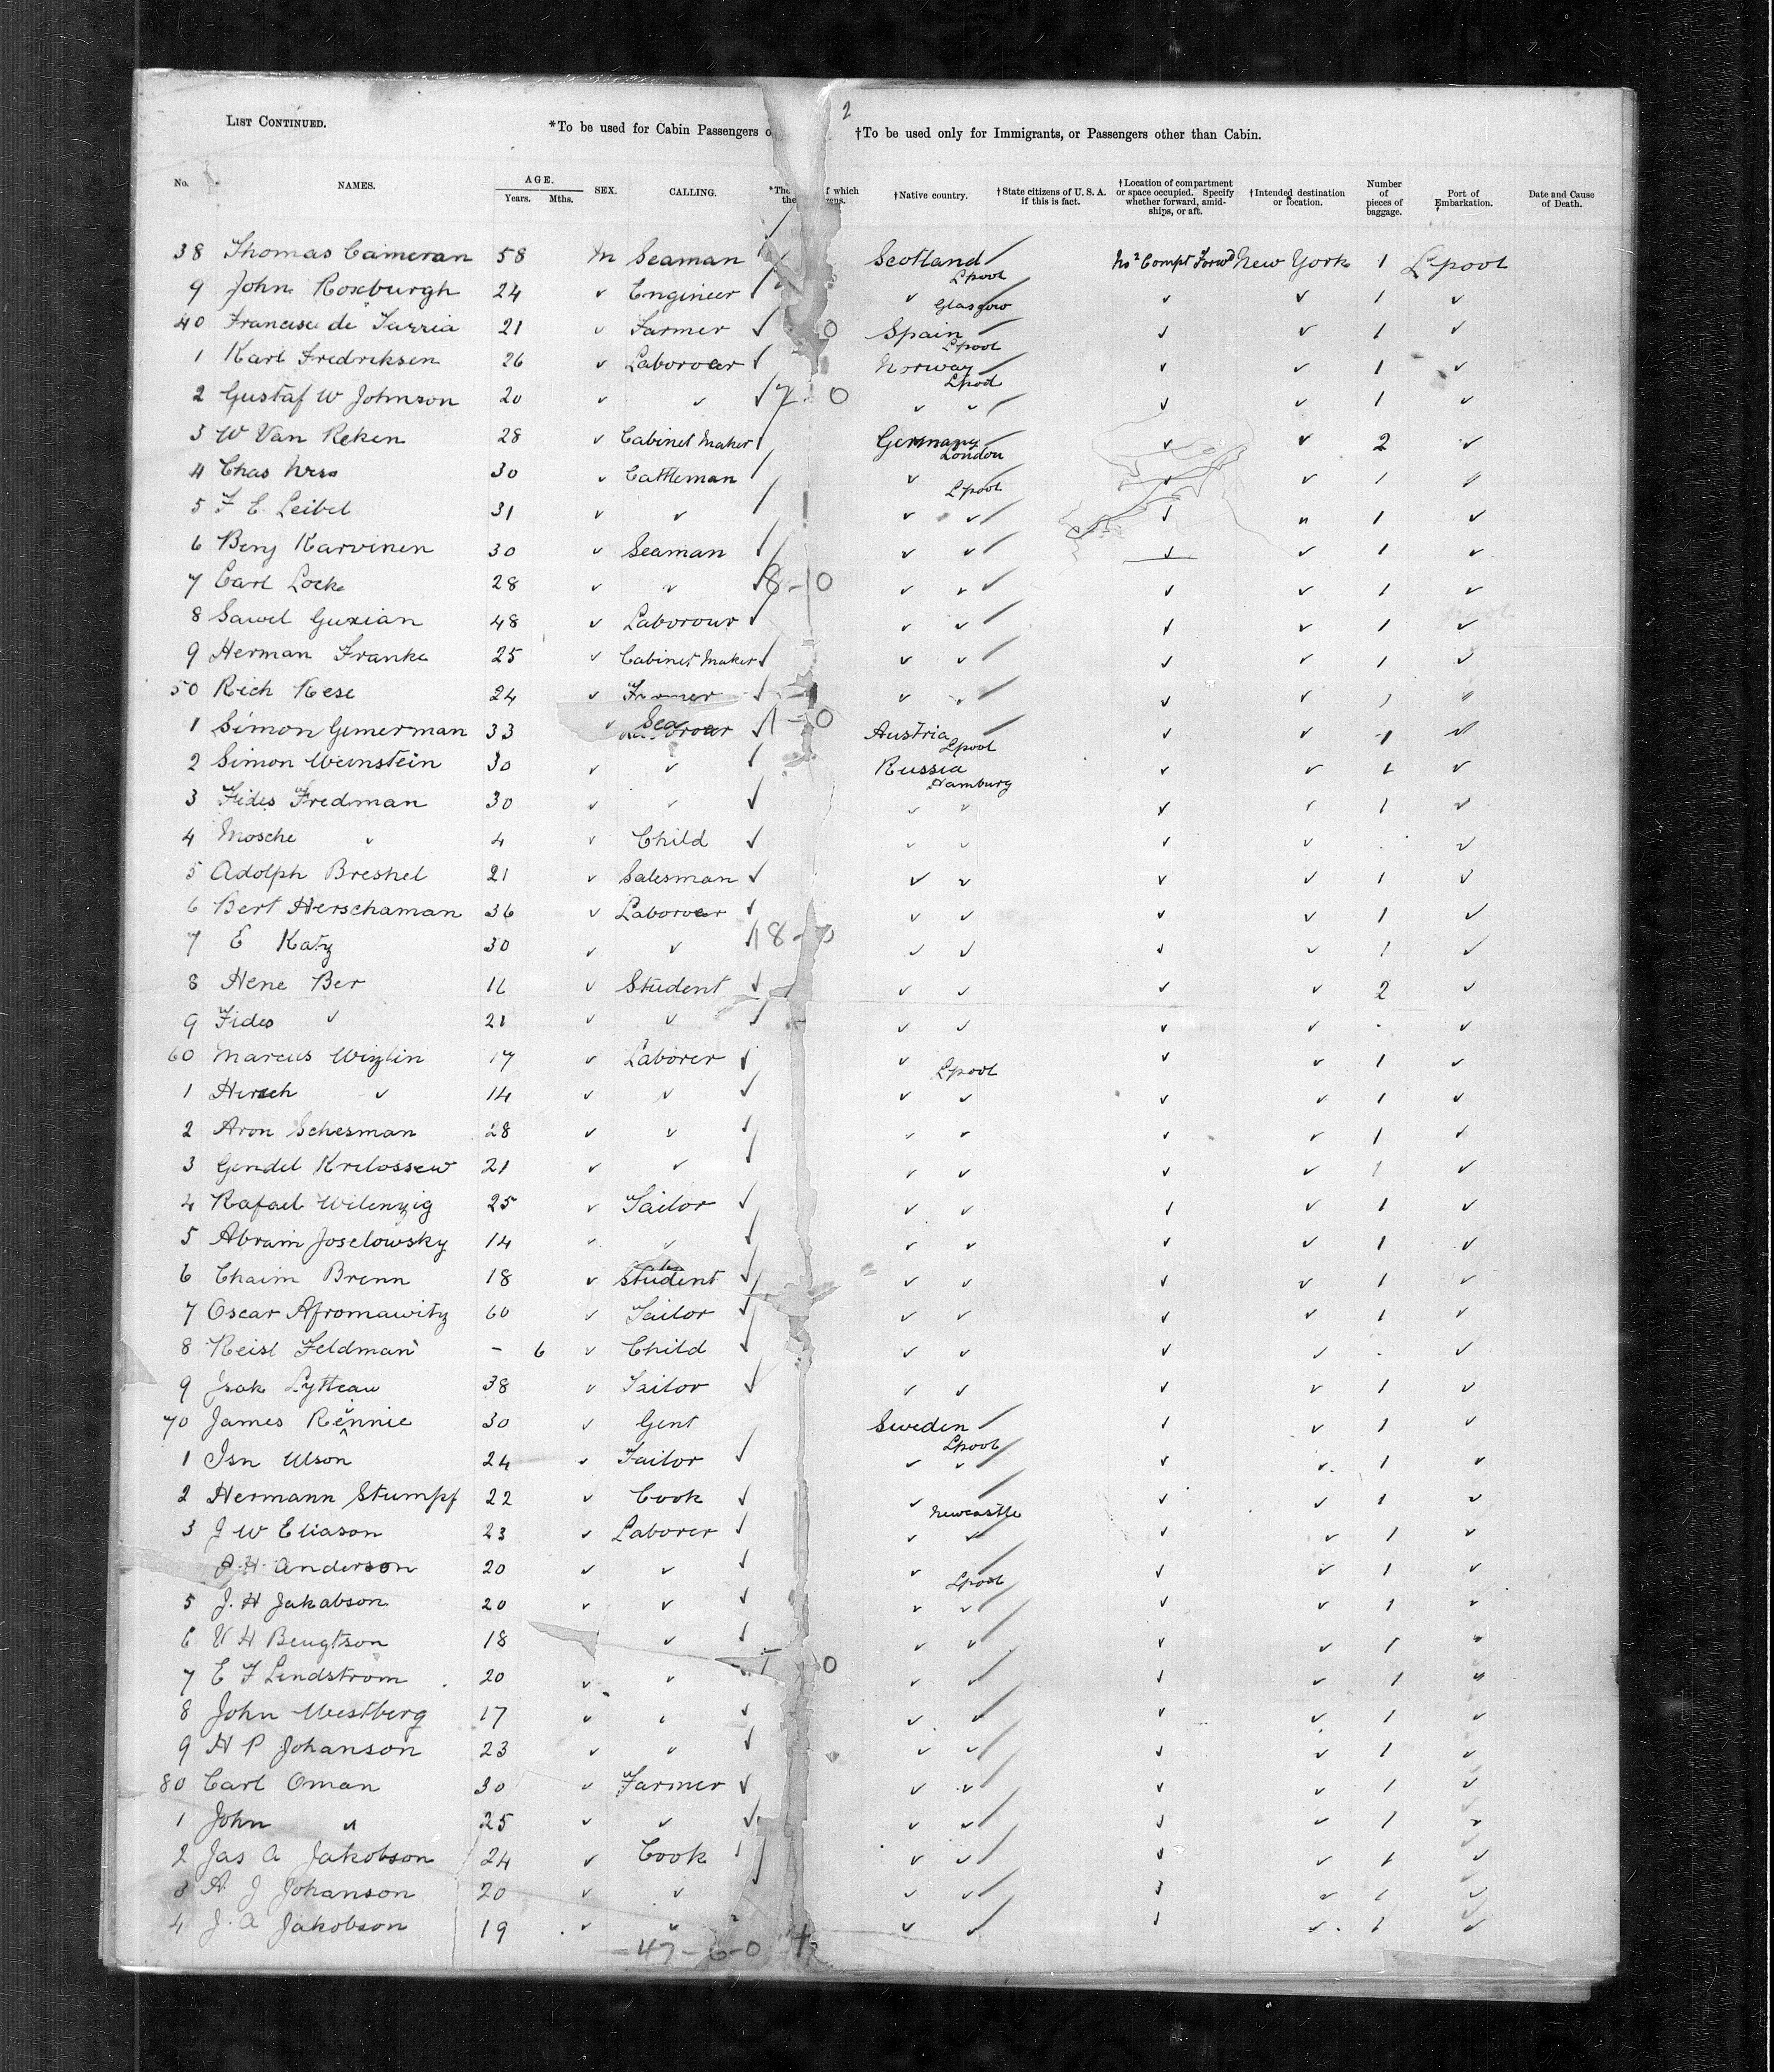 2
LIST CONTINUED. *To be used for Cabin Passengers o †To be used only for Immigrants, or Passengers other than Cabin.
No. NAMES. AGE. Years. Mths. SEX. CALLING. *The f which the zens. †Native country. †State citizens of U. S. A. if this is fact. †Location of compartment or space occupied. Specify whether forward, amidships, or aft. †Intended destination or location. Number of pieces of baggage. Port of Embarkation. Date and Cause of Death.
38 Thomas Cameran 58 m Seaman Scotland Lpool No 2 Compt Forwd New York 1 L'pool
9 John Roxburgh 24 ✓ Engineer ✓ Glasgow ✓ ✓ 1 ✓
40 Francisco de 21 ✓ Farmer ✓ 0 Spain Lpool ✓ ✓ 1 ✓
1 Karl Fredriksen 26 ✓ Laboroer ✓ Norway Lpool ✓ ✓ 1 ✓
2 Gustaf W Johnson 20 ✓ ✓ ✓ 7 0 ✓ ✓ ✓ ✓ 1 ✓
3 W Van Reken 28 ✓ Cabinet Maker Germany London ✓ ✓ 2 ✓
4 Chas 30 ✓ Cattleman ✓ Lpool ✓ ✓ 1 "
5 F E Leibel 31 ✓ ✓ ✓ ✓ ✓ " 1 ✓
6 Benj Karvinen 30 ✓ Seaman ✓ ✓ ✓ ✓ ✓ 1 ✓
7 Carl Locke 28 ✓ ✓ ✓ 8-10 ✓ ✓ ✓ ✓ 1 ✓
8 Sawel Guxian 48 ✓ Laborour ✓ ✓ ✓ ✓ ✓ 1 ✓
9 Herman Franke 25 ✓ Cabinet Maker ✓ ✓ ✓ ✓ ✓ 1 ✓
50 Rich Kese 24 ✓ Farmer ✓ ✓ ✓ ✓ ✓ 1 "
1 Simon Gimerman 33 ✓ 0 Austria Lpool ✓ ✓ 1 ✓
2 Simon Weinstein 30 ✓ ✓ ✓ Russia Hamburg ✓ ✓ 1 ✓
3 Fides Fredman 30 ✓ ✓ ✓ ✓ ✓ ✓ ✓ 1 ✓
4 Mosche ✓ 4 ✓ Child ✓ ✓ ✓ ✓ ✓ . ✓
5 Adolph Breshel 21 ✓ Salesman ✓ ✓ ✓ ✓ ✓ 1 ✓
6 Bert Herschaman 36 ✓ Laboroer ✓ ✓ ✓ ✓ ✓ 1 ✓
7 E Katz 30 ✓ ✓ ✓ 18- ✓ ✓ ✓ ✓ 1 ✓
8 Hene Ber 16 ✓ Student ✓ ✓ ✓ ✓ ✓ 2 ✓
9 Fides ✓ 21 ✓ ✓ ✓ ✓ ✓ ✓ ✓ . ✓
60 Marcus Wizlin 17 ✓ Laborer ✓ ✓ Lpool ✓ ✓ 1 ✓
1 Hirsch ✓ 14 ✓ ✓ ✓ ✓ ✓ ✓ ✓ 1 ✓
2 Aron Schesman 28 ✓ ✓ ✓ ✓ ✓ ✓ ✓ 1 ✓
3 Gendel Krelossew 21 ✓ ✓ ✓ ✓ ✓ ✓ 1 ✓
4 Rafael Wilenzig 25 ✓ Tailor ✓ ✓ ✓ ✓ ✓ 1 ✓
5 Abram Joselowsky 14 ✓ ✓ ✓ ✓ ✓ ✓ ✓ 1 ✓
6 Chaim Brenn 18 ✓ Student ✓ ✓ ✓ ✓ ✓ 1 ✓
7 Oscar Afromawitz 60 ✓ Tailor ✓ ✓ ✓ ✓ ✓ 1 ✓
8 Reisl Feldman - 6 ✓ Child ✓ ✓ ✓ ✓ ✓ . ✓
9 Isak Lytteau 38 ✓ Tailor ✓ ✓ ✓ ✓ ✓ 1 ✓
70 James Rennie 30 ✓ Gent Sweden Lpool ✓ ✓ 1 ✓
1 Isn Ulson 24 ✓ Tailor ✓ ✓ ✓ ✓ ✓ 1 ✓
2 Hermann Stumpf 22 ✓ Cook ✓ ✓ Newcastle ✓ ✓ 1 ✓
3 J W Eliason 23 ✓ Laborer ✓ ✓ ✓ ✓ ✓ 1 ✓
P. H. Anderson 20 ✓ ✓ ✓ ✓ Lpool ✓ ✓ 1 ✓
5 J. H Jakabson 20 ✓ ✓ ✓ ✓ ✓ ✓ ✓ 1 ✓
6 U H Bengtson 18 ✓ ✓ ✓ ✓ ✓ ✓ 1 "
7 E F Lindstrom 20 ✓ ✓ 0 ✓ ✓ ✓ ✓ 1 "
8 John Westberg 17 ✓ ✓ ✓ ✓ ✓ ✓ ✓ 1 ✓
9 H P Johanson 23 ✓ ✓ ✓ ✓ ✓ ✓ ✓ 1 ✓
80 Carl Oman 30 ✓ Farmer ✓ ✓ ✓ ✓ ✓ 1 ✓
1 John " 25 ✓ ✓ ✓ ✓ ✓ ✓ ✓ 1 ✓
2 Jas A Jakobson 24 ✓ Cook ✓ ✓ ✓ ✓ ✓ 1 ✓
3 A. J Johanson 20 ✓ ✓ ✓ ✓ ✓ ✓ 1 ✓
4 J. A Jakobson 19 ✓ ✓ ✓ ✓ ✓ ✓ 1 ✓
=47-6-0